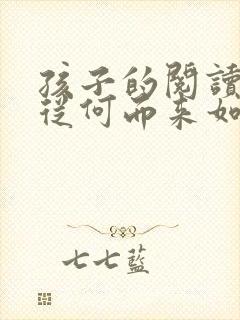 孩子的閱讀
從何而来如
七七藍